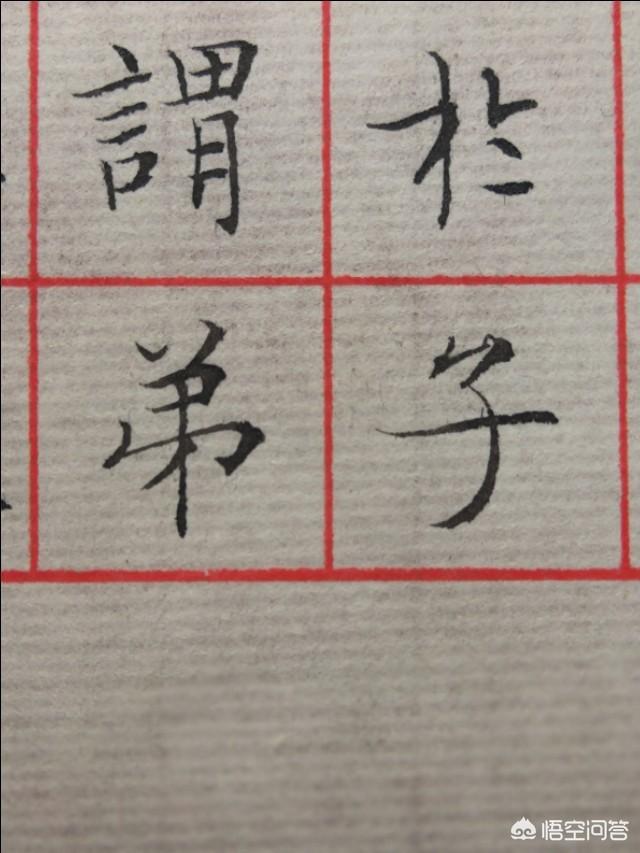 於子
謂弟
悟空问答